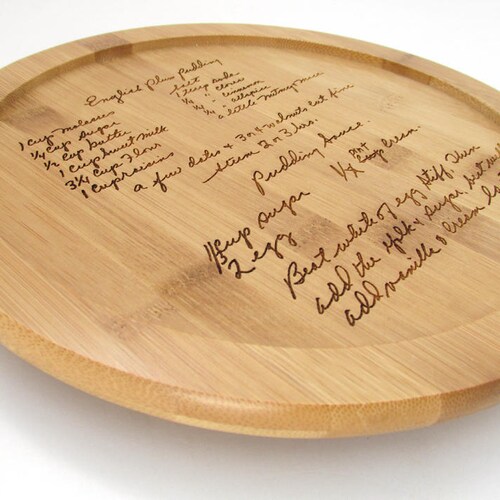 English Plum Pudding
1 cup molasses
1/4 cup sugar
1/2 cup butter
1 cup sweet milk
3 3/4 cup flour
1 cup raisins
salt
1 tsp soda
" cloves
" cinnamon
1/4 " allspice
a little nutmeg mace
a few dates & 3 or 4 walnuts cut fine
steam 2 or 3 hrs.
Pudding Sauce.
cup sugar
2 egg
1/4 pint cream.
Beat white of egg stiff. Then
add the yolk & sugar, beat
add vanilla & cream